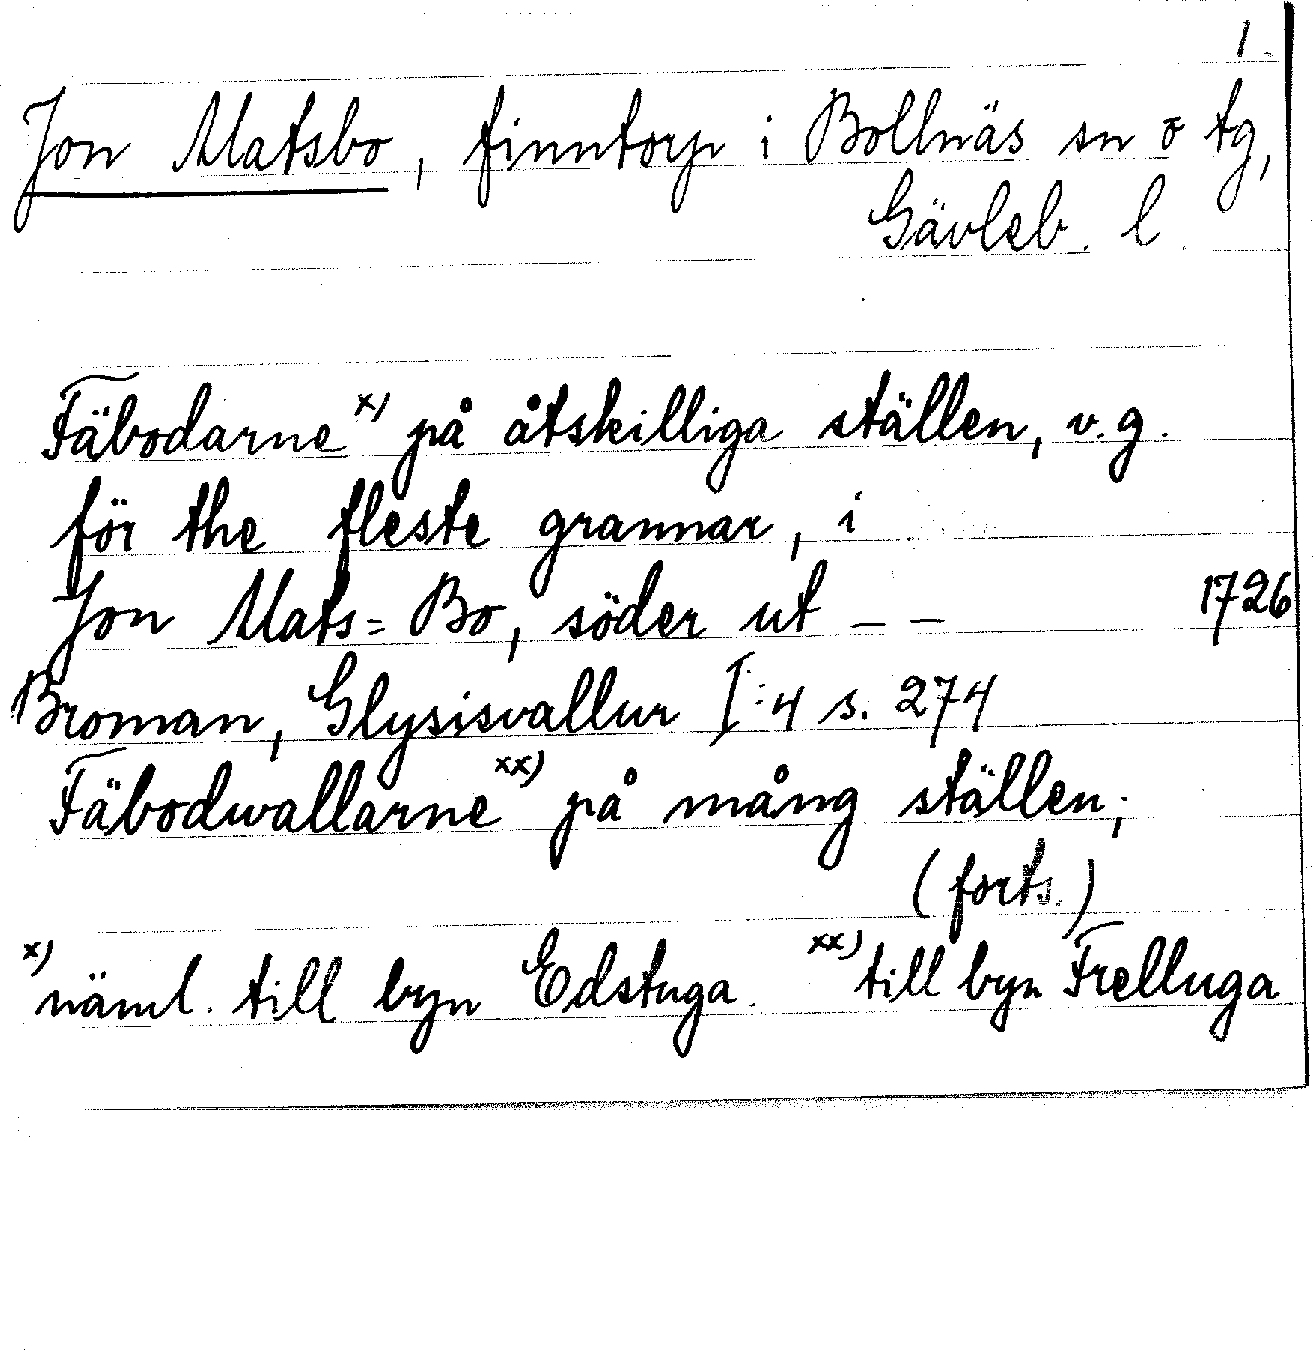 1.
Jon Matsbo, finntorp i Bollnäs sn o tg,
Gävleb. l.
Fäbodarne x) på åtskilliga ställen, v.g.
för the fleste grannar, i
Jon Mats=Bo, söder ut – – 1726
Broman, Glysisvallur I:4 s. 274
Fäbodwallarne xx) på mång ställen;
(forts.)
x) näml. till byn Edstuga. xx) till byn Frelluga